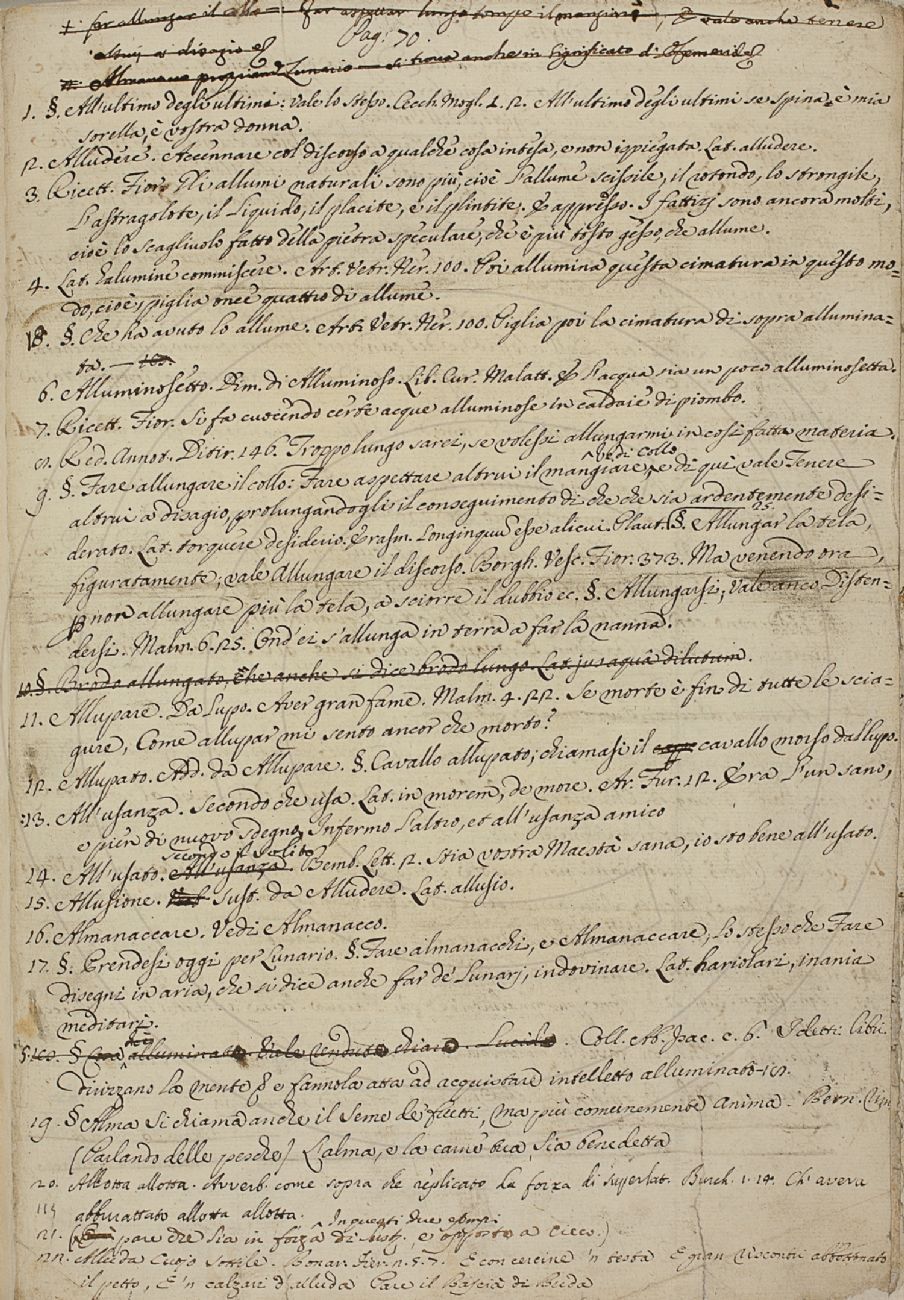 + far allungar il collo = far aspettar lungo tempo il mangiare, E vale anche tenere
Pag. 70.
altrui a disagio &
# Almanacco propriamte Lunario — si trova anche in significato di Efemeride &
1. §. All'ultimo degli ultimi: Vale lo stesso. Cecch. Mogl. 1. 2. All'ultimo degli ultimi se spina è mia
sorella, è vostra donna.
2. Alludere. Accennare col discorso a qualche cosa intesa, e non ispiegata. Lat. alludere.
3. Ricett. Fior. Gli allumi naturali sono più, cioè l'allume scissile, il rotondo, lo strongile,
l'astragolote, il liquido, il placite, e il plintite. & appresso. I fattizj sono ancora molti,
cioè lo scagliuolo fatto della pietra speculare, che è più tosto gesso, che allume.
4. Lat. alumine commiscere. Art. Vetr. Ner. 100. Poi allumina questa cimatura in questo mo-
do, cioè, piglia once quattro di allume.
5. §. Che ha avuto lo allume. Art. Vetr. Ner. 100. Piglia poi la cimatura di sopra allumina-
ta. —
6. Alluminosetto. Dim. di Alluminoso. Lib. Cur. Malatt. & l'acqua sia un poco alluminosetta.
7. Ricett. Fior. Si fa cuocendo certe acque alluminose in caldaie di piombo.
8. Red. Annot. Ditir. 146. Troppo lungo sarei, se volessi allungarmi in così fatta materia.
9. §. Fare allungare il collo: Fare aspettare altrui il mangiare, e di qui vale Tenere
altrui a disagio, prolungandogli il conseguimento di che che sia ardentemente desi-
derato. Lat. torquere desiderio. Erasm. longinquum esse alicui. Plaut. §. Allungar la tela,
figuratamente, vale Allungare il discorso. Borgh. Vesc. Fior. 373. Ma venendo ora,
p non allungare più la tela, a sciorre il dubbio ec. §. Allungarsi, Vale anco Disten-
dersi. Malm. 6. 25. Ond'ei s'allunga in terra a far la nanna.
10. §. Brodo allungato, che anche si dice brodo lungo. Lat. jus aquâ dilutum.
11. Allupare. Da Lupo. Aver gran fame. Malm. 4. 22. Se morte è fin di tutte le scia-
gure, Come allupar mi sento ancor che morto?
12. Allupato. Add. da Allupare. §. Cavallo allupato; chiamasi il cavallo morso dal lupo.
13. All'usanza. Secondo che usa. Lat. in morem, de more. Ar. Fur. 12. Era l'un sano,
e pien di nuovo sdegno, Infermo l'altro, et all'usanza amico
secondo il solito
14. All'usato. All'usanza. Bemb. Lett. 2. Stia vostra Maestà sana, io sto bene all'usato.
15. Allusione. Sust. da Alludere. Lat. allusio.
16. Almanaccare. Vedi Almanacco.
17. §. Prendesi oggi per Lunario. §. Fare almanacchi, e Almanaccare, lo stesso che Fare
disegni in aria, che si dice anche far de' Lunarj, indovinare. Lat. hariolari, inania
meditari.
alluminato Vale chiaro. Lucido. Coll. Ab. Isac. c. 6.
la mente & e fannola atta ad acquistare intelletto alluminato
19. § Alma si chiama anche il seme de' frutti, ma più comunemente Anima. Bern. Rim
(Parlando delle pesche) L'alma, e la carne sua sia benedetta
20. Allotta allotta. Avverb. come sopra che replicato ha forza di superlat. Burch. 1. 14. Ch'avera
abburattato allotta allotta.
In questi due esempi
21. (pare che sia in forza di sust. e opposto a Cieco.)
22. Alluda Cuojo sottile. Bonar. Fier. E con cercine 'n testa E gran
il petto, E 'n calzari d'alluda Pare il Bascià di Buda